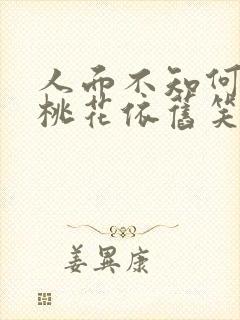 人而不知何
桃花依舊笑
姜異康